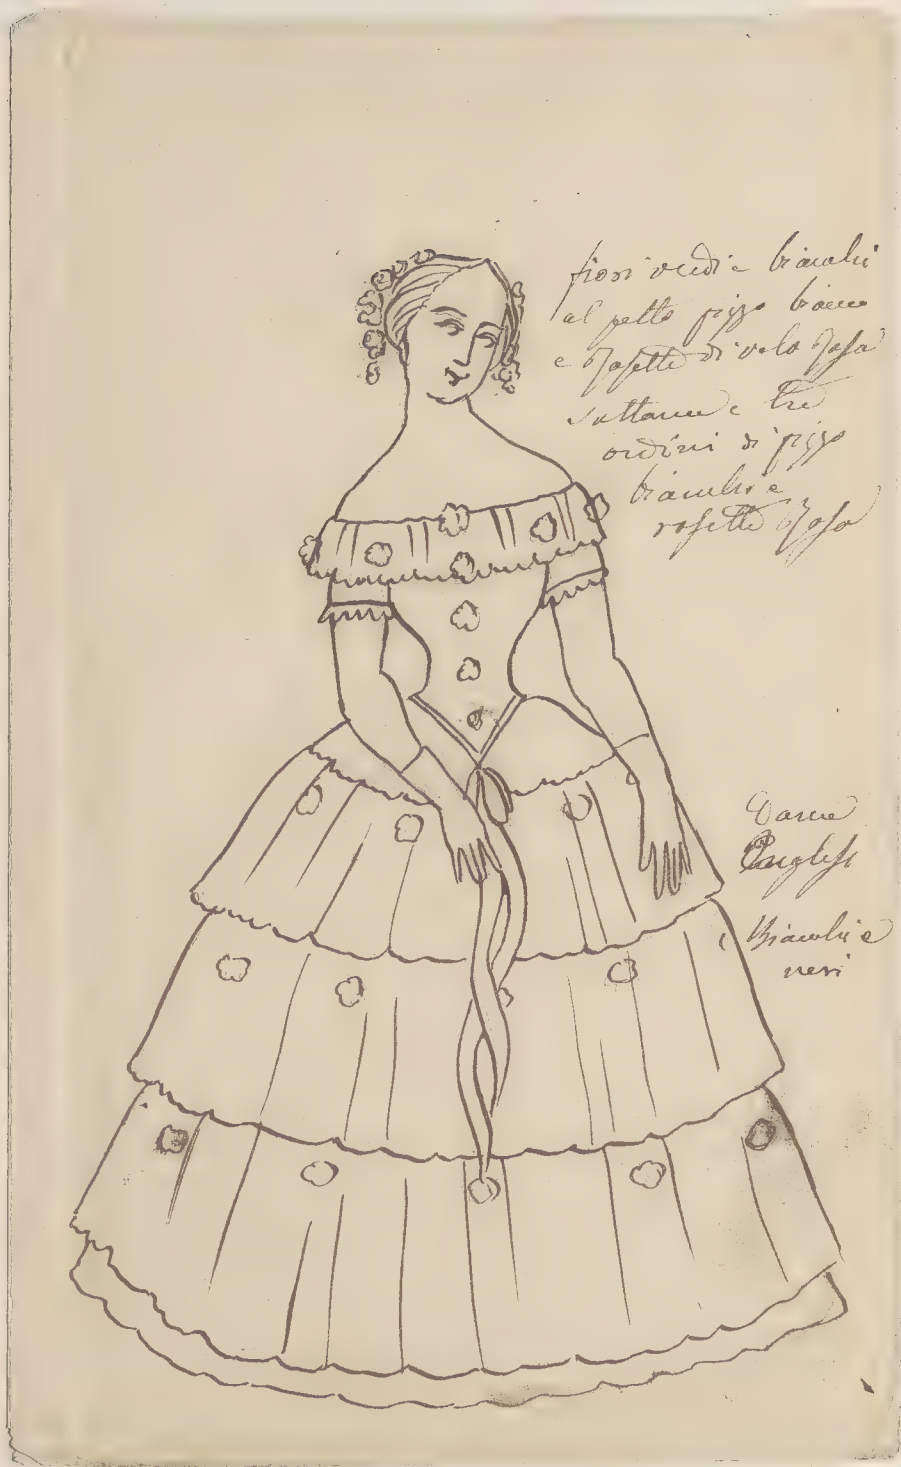 fiori verdi e bianchi
al petto pizzo bianco
e Rosette di velo Rosa
sottane e tre
ordini di pizzo
bianchi e
rosette Rosa
Dame
Inglesi
Bianchi e
neri